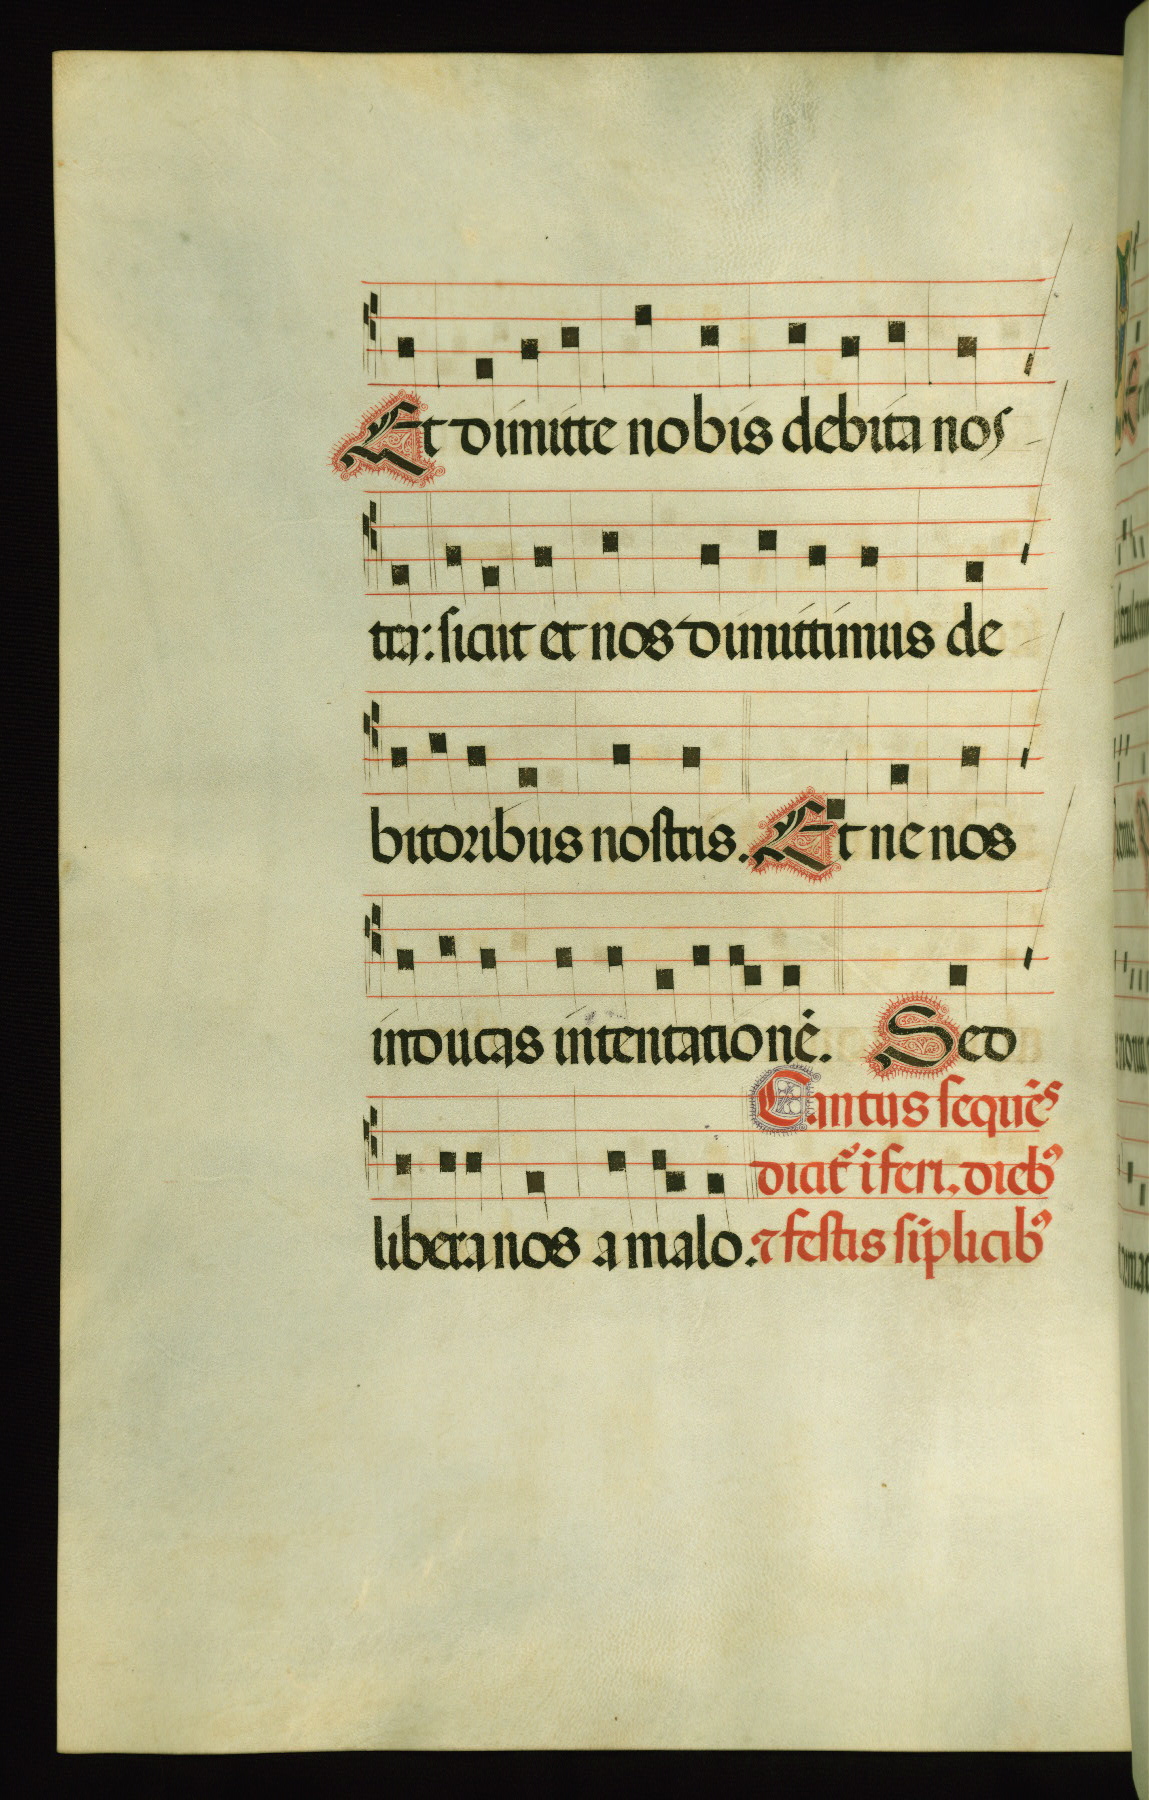 Et dimitte nobis debita nos
tra: sicut et nos dimittimus de
bitoribus nostris. Et ne nos
inducas intentationē. Sed
Cantus sequēs
libera nos a malo.
dicat᷑ ī feri. dieb⁹
⁊ festis sīplicib⁹